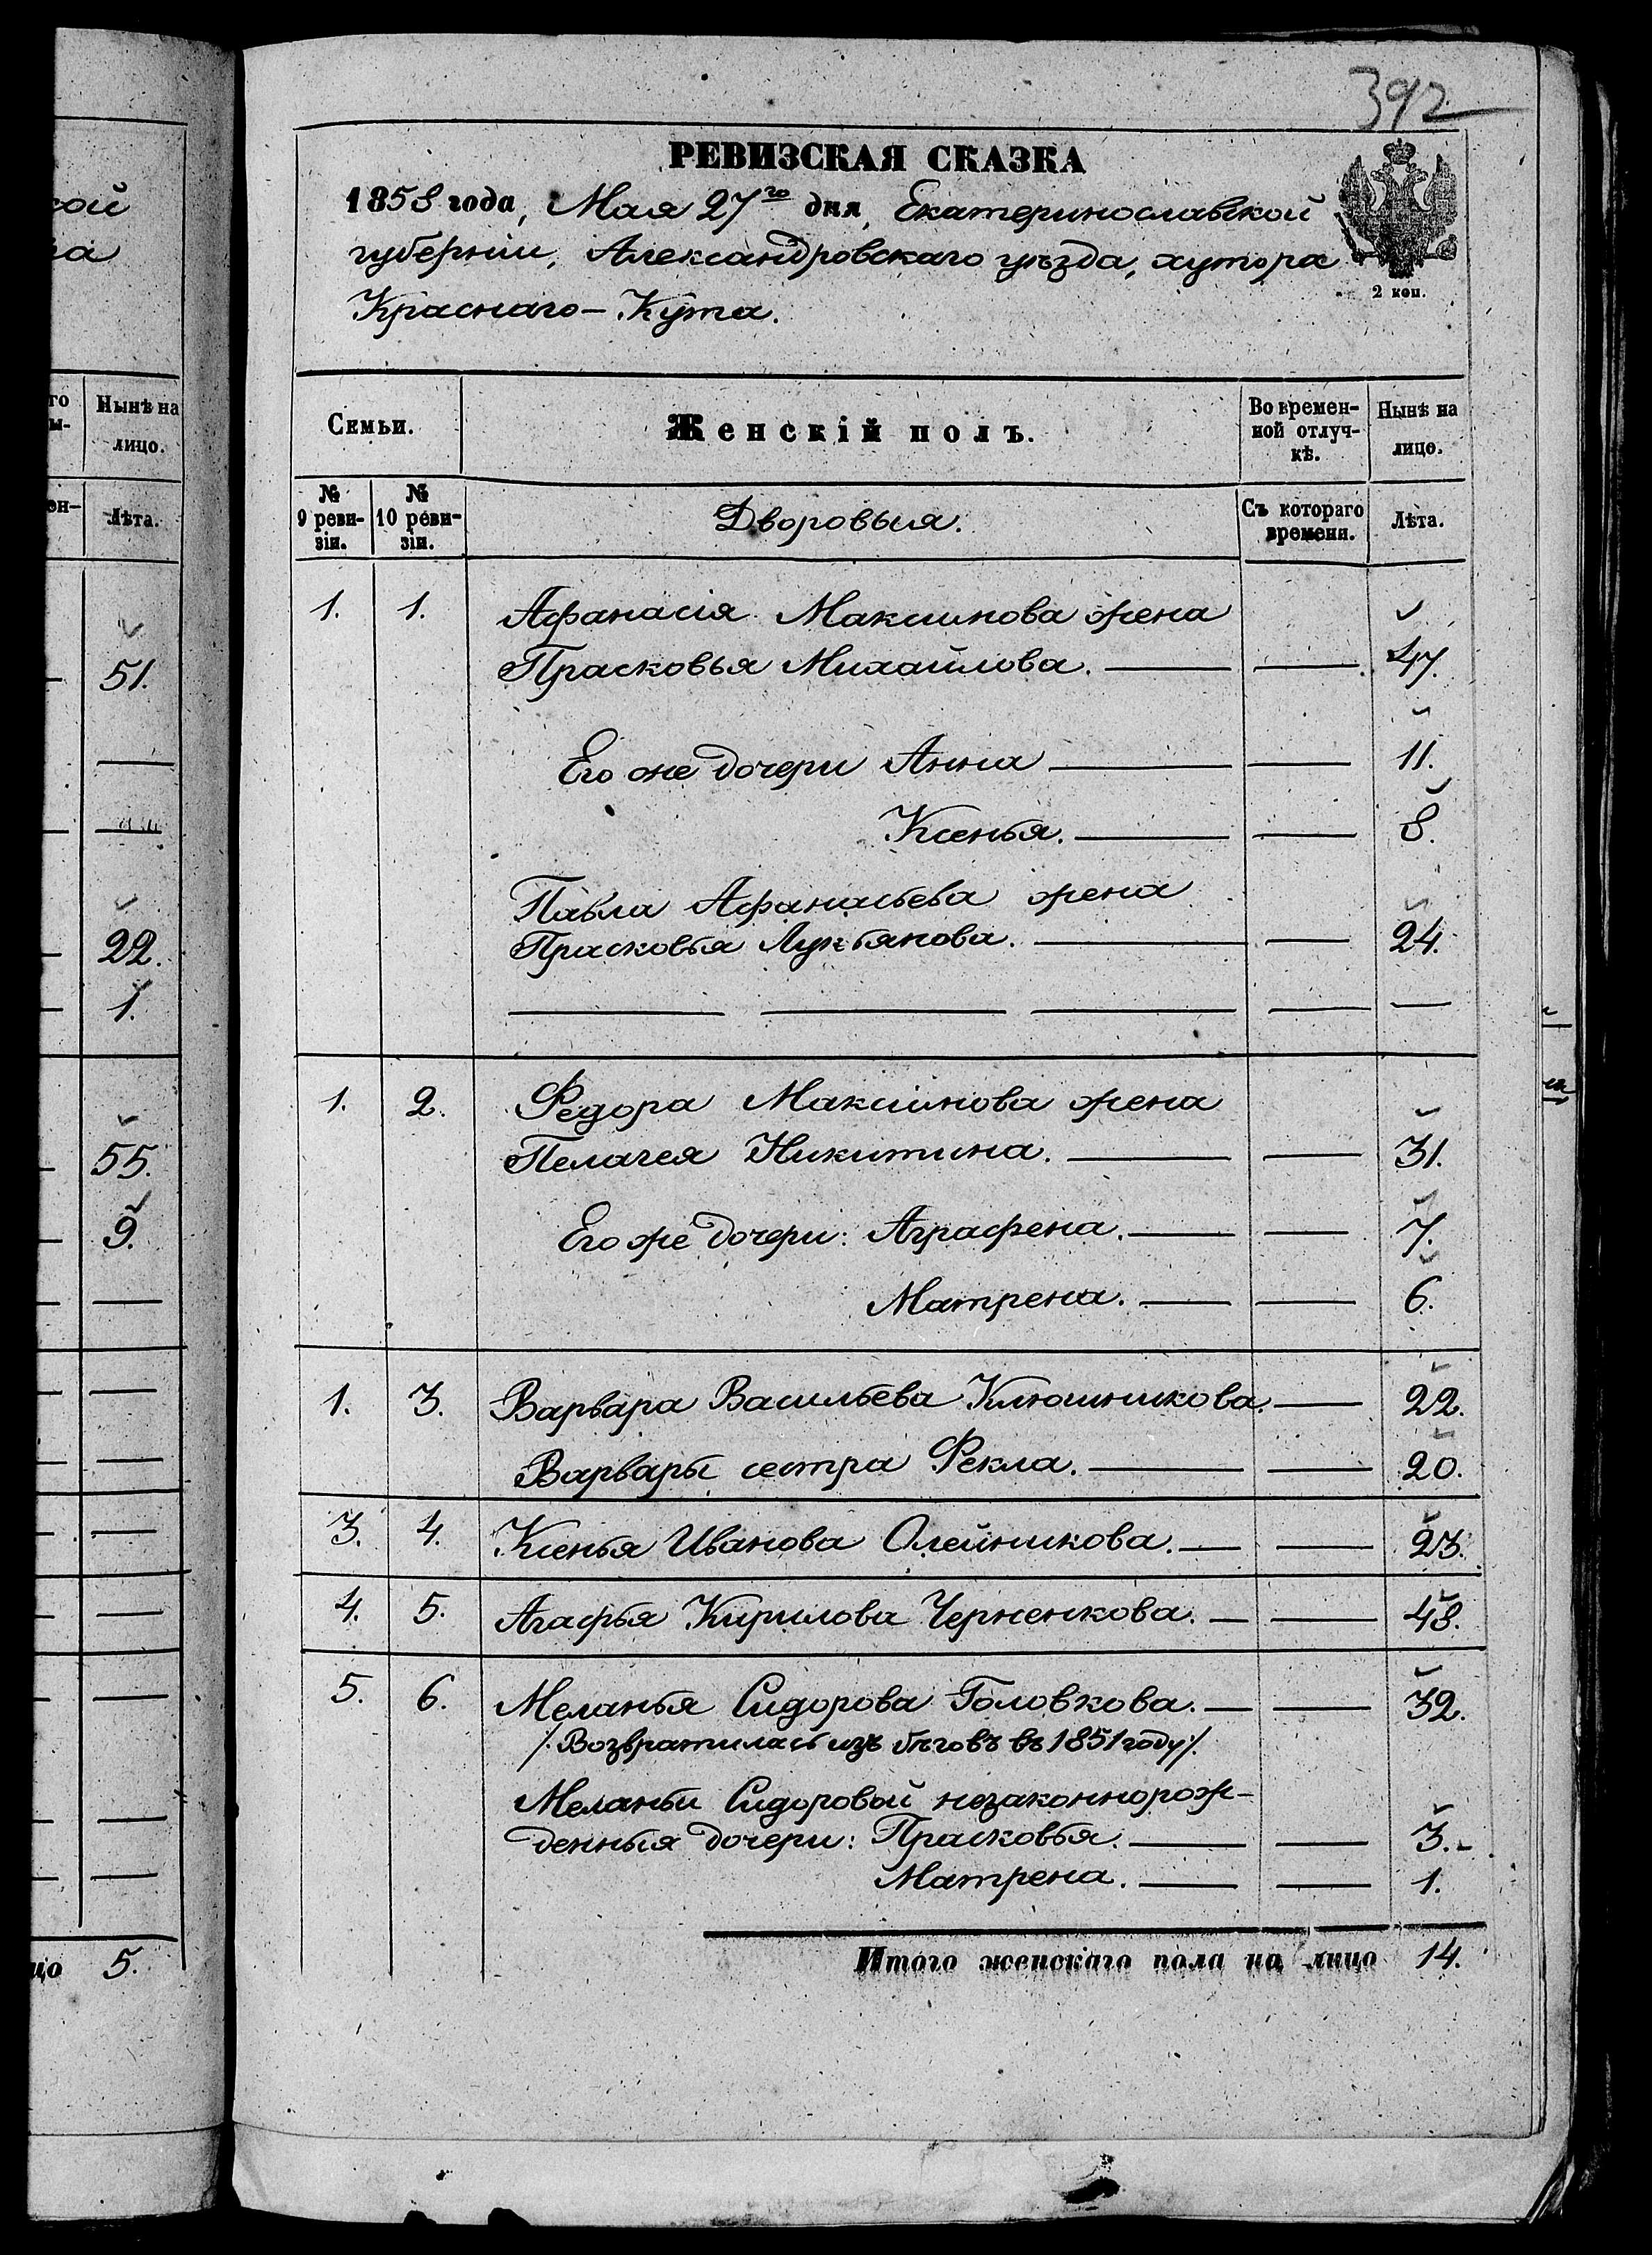 392
РЕВИЗСКАЯ СКАЗКА
1858 года, Мая 27го дня, Екатеринославской
губернiи, Александровскаго уѣзда, хутора
Краснаго-Кута.
2 коп.
Семьи.
Женскiй полъ.
Во времен-
ной отлуч-
кѣ.
Нынѣ на
лицо.
№
9 реви-
зiи.
№
10 реви-
зiи.
Дворовыя.
Съ котораго
времени.
Лѣта.
1. 1. Афанасiя Максимова жена
Прасковья Михайлова. 47.
Его же дочери Анна 11.
Ксенья. 8.
Павла Афанасьева жена
Прасковья Лукьянова. 24.
1. 2. Федора Максимова жена
Пелагея Никитина. 31.
Его же дочери: Аграфена. 7.
Матрена. 6.
1. 3. Варвара Васильева Клюшникова. 22.
Варвары сестра Фекла. 20.
3. 4. Ксенья Иванова Олейникова. 23.
4. 5. Агафья Кирилова Черненкова. 48.
5. 6. Меланья Сидорова Головкова. 32.
/.Возвратилась изъ бѣговъ въ 1851 году/.
Меланьи Сидоровой незаконнорож-
денныя дочери: Прасковья. 3.
Матрена. 1.
Итого женскаго пола на лицо 14.
Нынѣ на
лицо.
Лѣта.
51.
22.
1.
55.
9.
5.